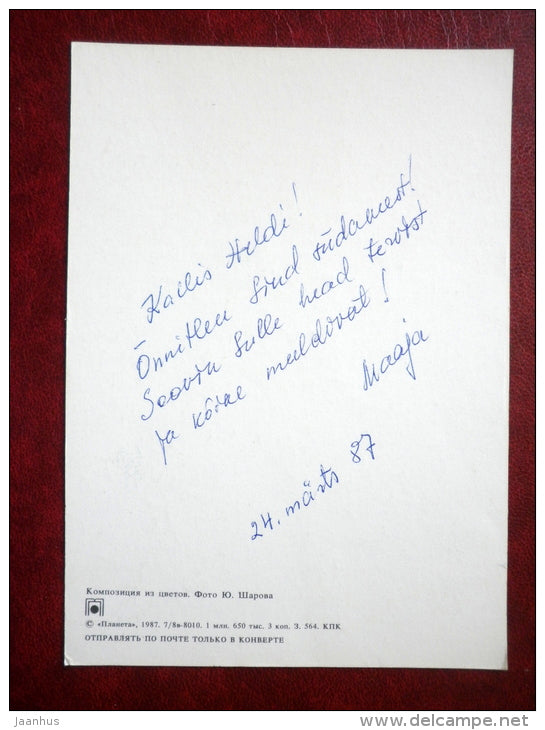 Kallis Heldi!
Õnnitlen Sind südamest!
Soovin Sulle head tervist
ja kõike muldõvat!
Maaja
24. märts 87
Композиция из цветов. Фото Ю. Шарова
© «Планета», 1987. 7/8в-8010. 1 млн. 650 тыс. 3 коп. З. 564. КПК
ОТПРАВЛЯТЬ ПО ПОЧТЕ ТОЛЬКО В КОНВЕРТЕ
jaanhus
www.delcampe.net